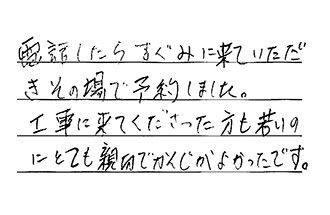 電話したらすぐみに来ていただ
きその場で予約しました。
工事に来てくださった方も若いの
にとても親切でかんじがよかったです。